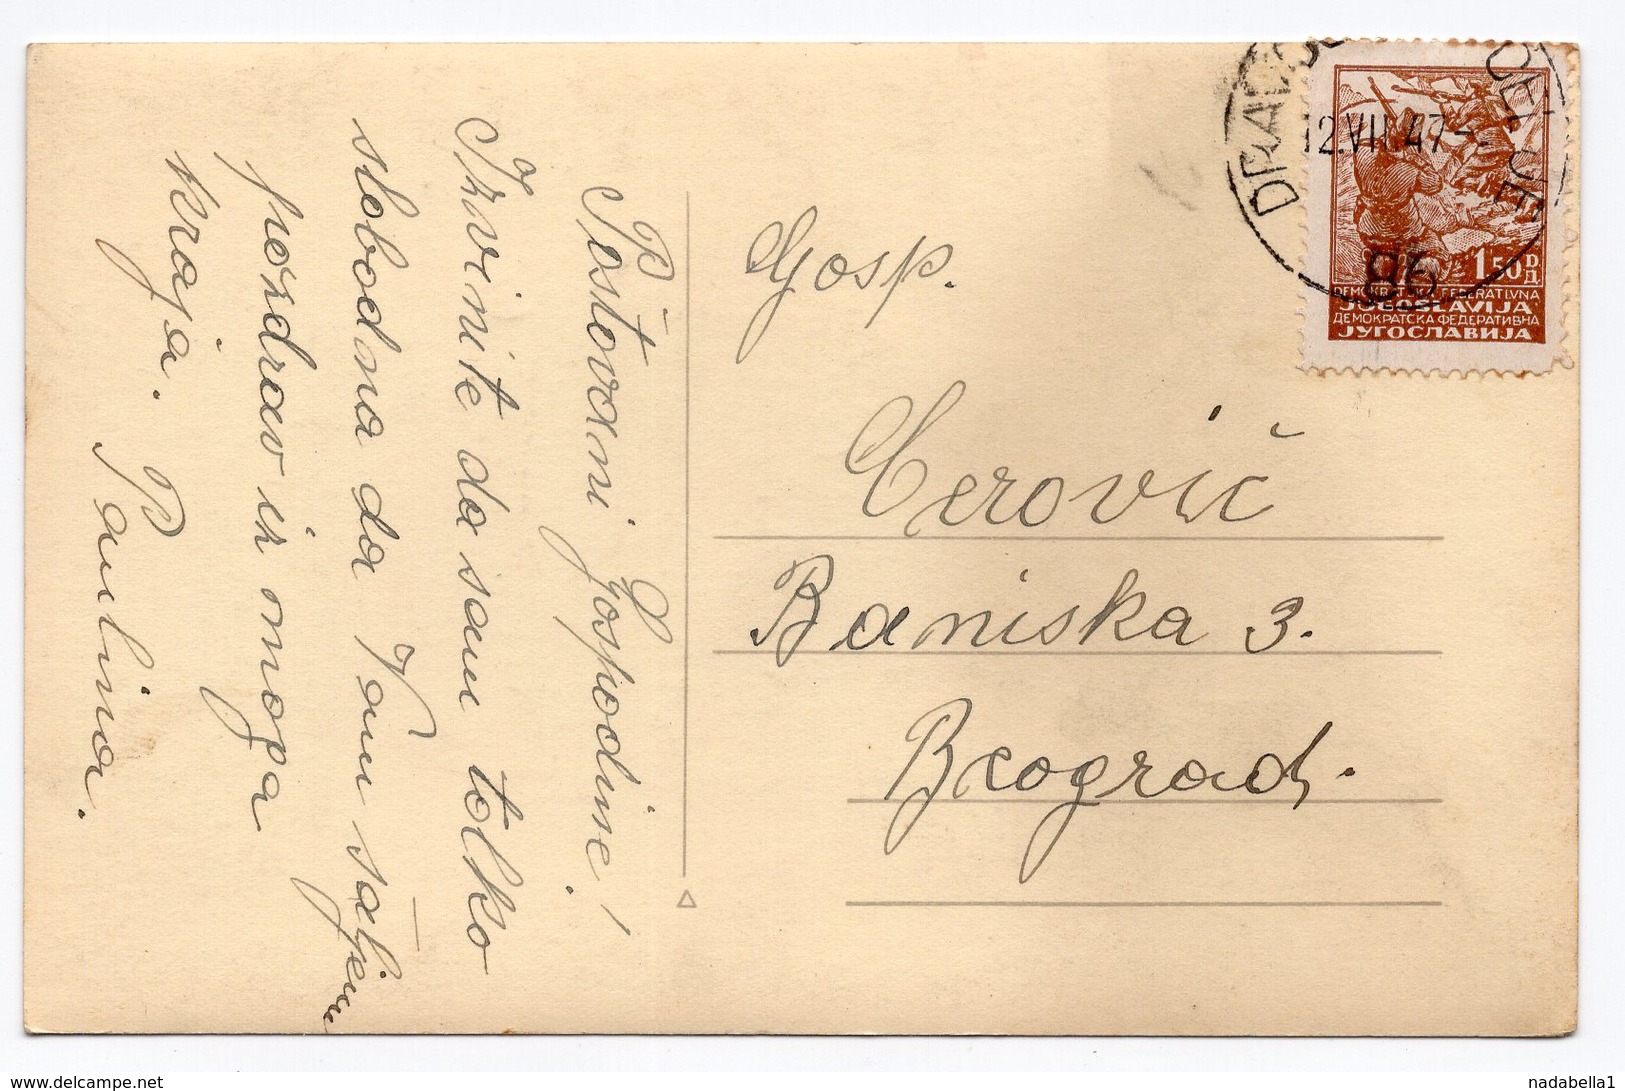 Poštovani Gospodine!
Izvinite da sam tolko
slobodna da Vam saljem
pozdrav iz moga
kraja. Paulina.
Gosp.
Cerovič
Baniska 3.
Beograd.
12.VII.47
1 50 D.
Д.
DEMOKRATSKA FEDERATIVNA
JUGOSLAVIJA
ДЕМОКРАТСКА ФЕДЕРАТИВНА
ЈУГОСЛАВИЈА
delcampe.net
nadabella1